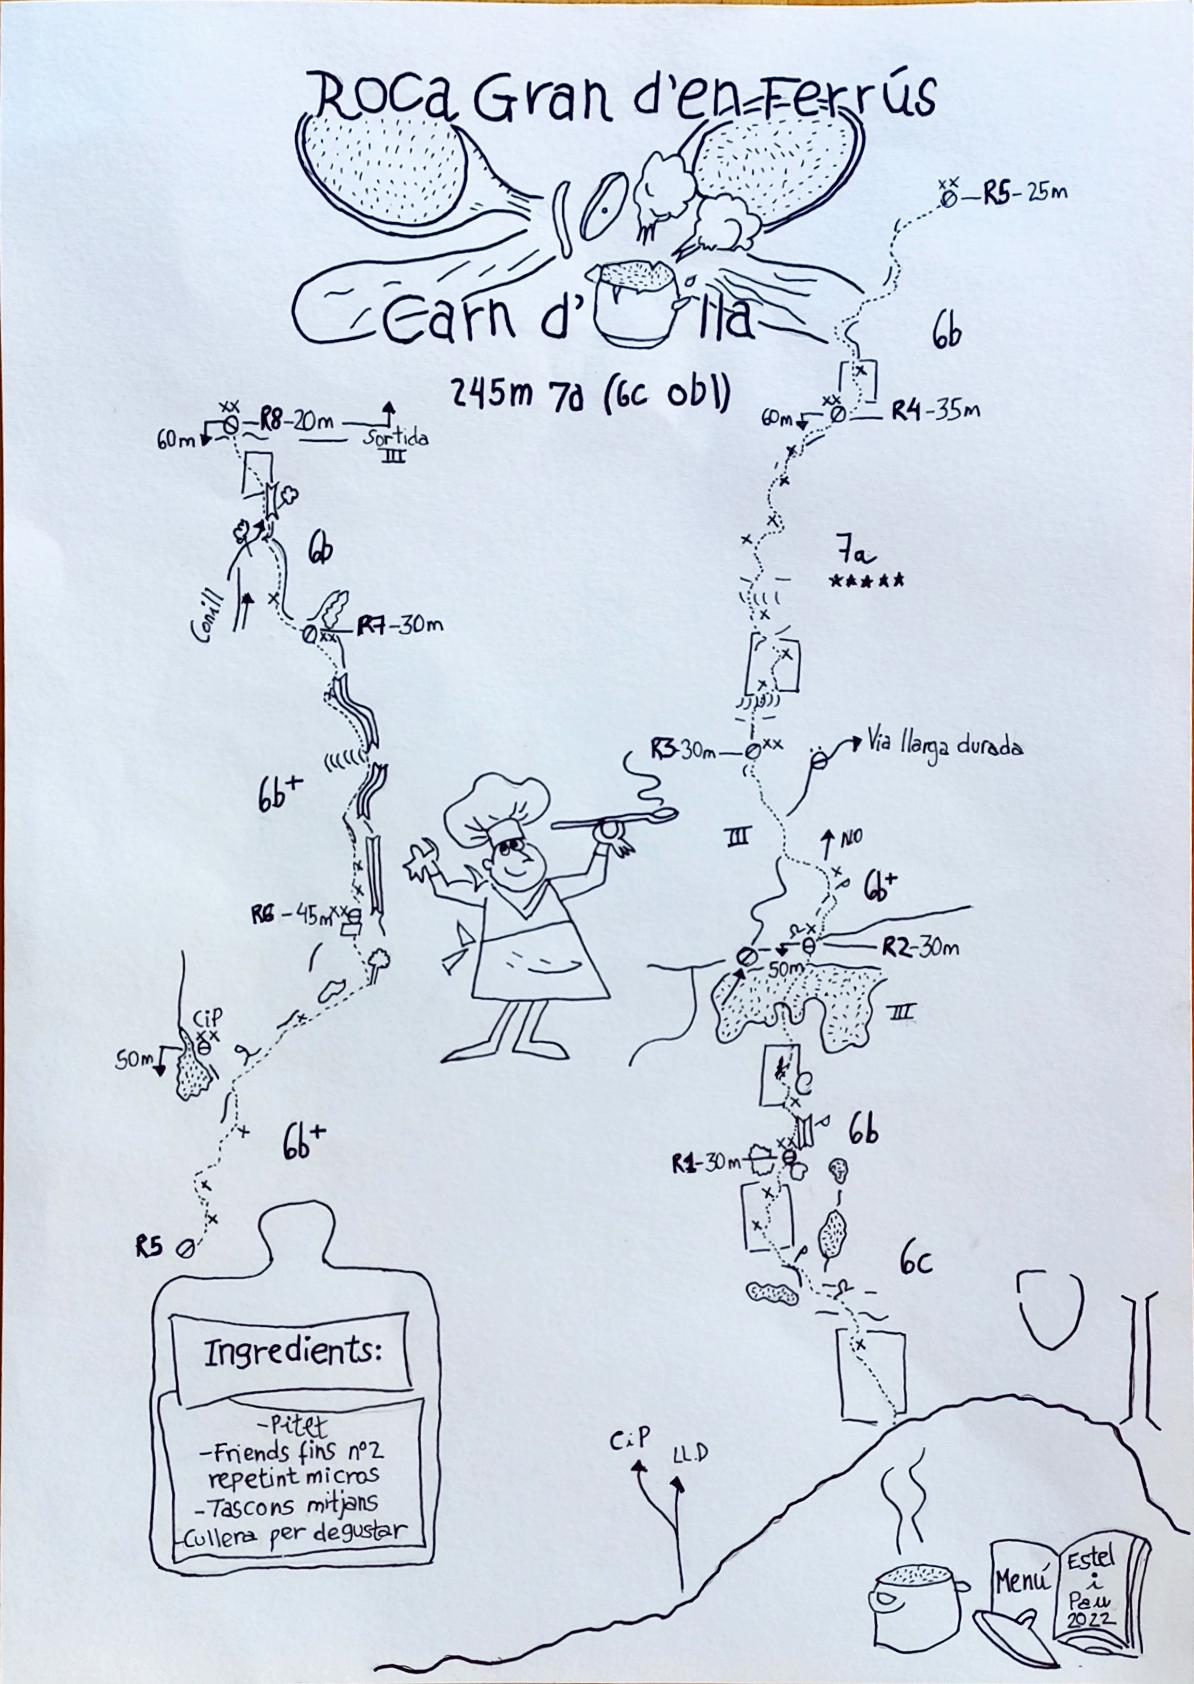 Roca Gran d'en Ferrús
Carn d' lla
245m 7a (6c obl)
R5-25m
6b
60m
R4-35m
7a
R3-30m
Via llarga durada
III
NO
6b+
R2-30m
50m
III
6b
R1-30m
6c
R8-20m
60m
Sortida
III
6b
Conill
R7-30m
6b+
R6-45m
CiP
50m
6b+
R5
Ingredients:
-Pitet
-Friends fins nº2
repetint micros
-Tascons mitjans
-Cullera per degustar
CiP
LL.D
Menú
Estel
i
Pau
2022